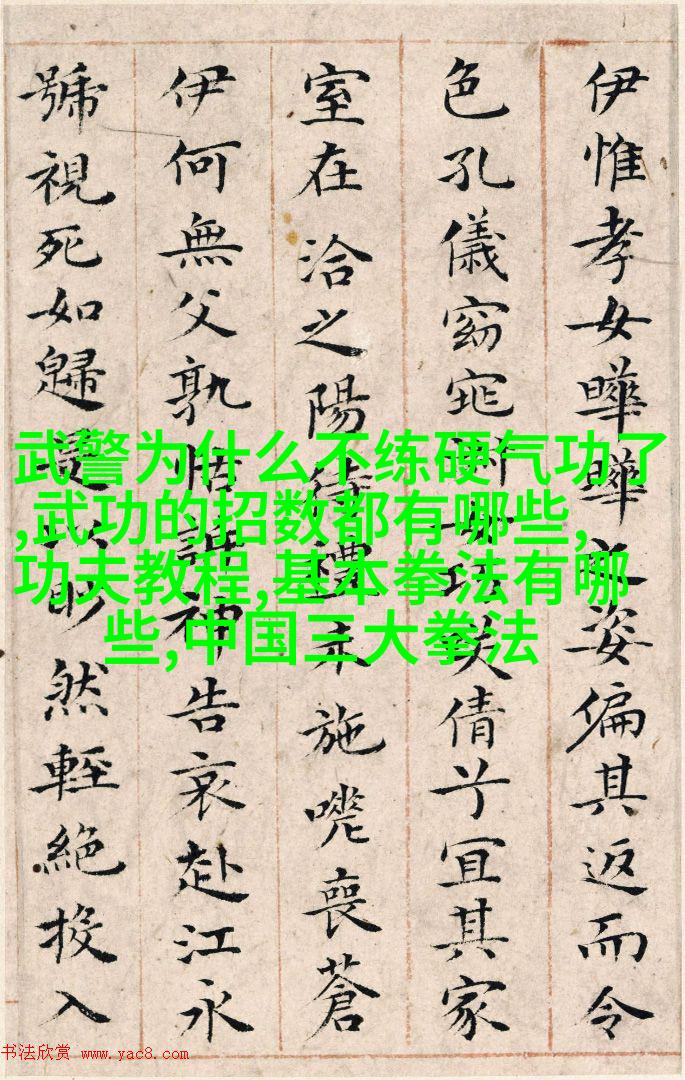 伊惟孝女曄曄之姿偏其返而令
色孔儀窈窕淑女巧笑倩兮宜其家
室在洽之陽待禮未施嗟喪蒼
伊何無父孰怙訴神告哀赴江永
號視死如歸是以眇然輕絕投入
武警为什么不练硬气功了
,武功的招数都有哪些,
功夫教程,基本拳法有哪
些,中国三大拳法
书法欣赏 www.yac8.com